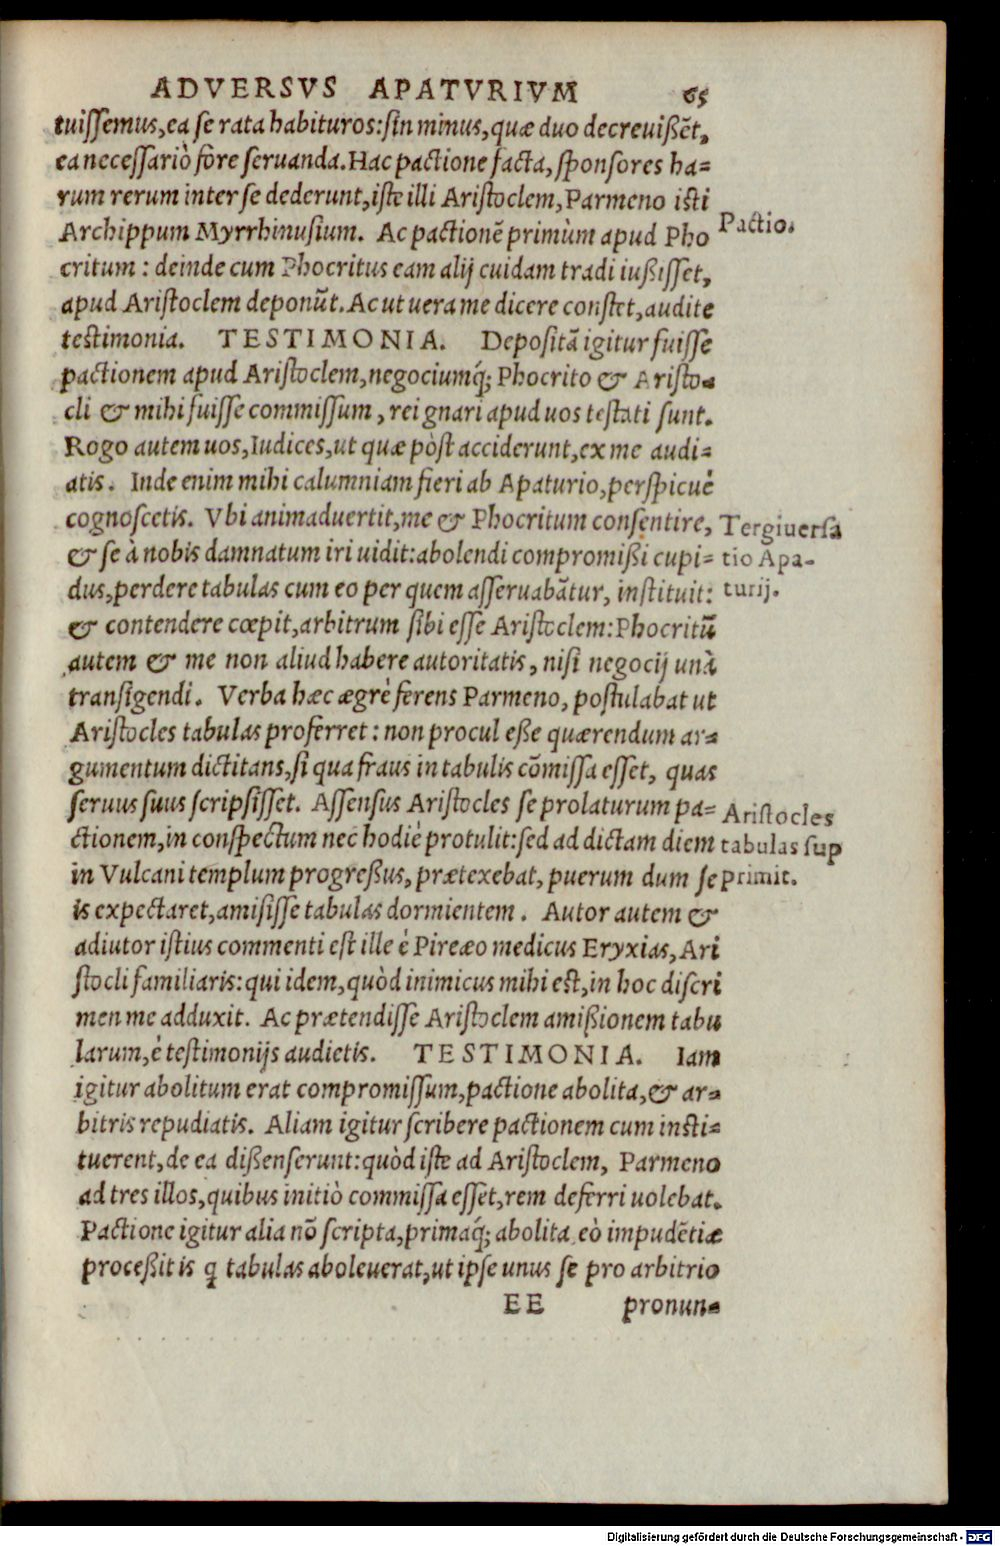 ADVERSVS APATVRIVM 65
tuissemus, ea se rata habituros: sin minus, quæ duo decreuißẽt,
ea necessariò fore seruanda. Hac pactione facta, sponsores ha-
rum rerum inter se dederunt, iste illi Aristoclem, Parmeno isti
Archippum Myrrhinusium. Ac pactionẽ primùm apud Pho
Pactio.
critum: deinde cum Phocritus eam alij cuidam tradi iußisset,
apud Aristoclem deponũt. Ac ut uera me dicere constet, audite
testimonia. TESTIMONIA. Depositã igitur fuisse
pactionem apud Aristoclem, negociumq́; Phocrito & Aristo-
cli & mihi fuisse commissum, rei gnari apud uos testati sunt.
Rogo autem uos, Iudices, ut quæ pòst acciderunt, ex me audi-
atis. Inde enim mihi calumniam fieri ab Apaturio, perspicuè
cognoscetis. Vbi animaduertit, me & Phocritum consentire,
Tergiuersa
& se à nobis damnatum iri uidit: abolendi compromißi cupi-
tio Apa-
dus, perdere tabulas cum eo per quem asseruabãtur, instituit:
turij.
& contendere cœpit, arbitrum sibi esse Aristoclem: Phocritũ
autem & me non aliud habere autoritatis, nisi negocij unà
transigendi. Verba hæc ægrè ferens Parmeno, postulabat ut
Aristocles tabulas proferret: non procul eße quærendum ar-
gumentum dictitans, si qua fraus in tabulis cõmissa esset, quas
seruus suus scripsisset. Assensus Aristocles se prolaturum pa-
Aristocles
ctionem, in conspectum nec hodiè protulit: sed ad dictam diem
tabulas sup
in Vulcani templum progreßus, prætexebat, puerum dum se
primit.
is expectaret, amisisse tabulas dormientem. Autor autem &
adiutor istius commenti est ille è Pireæo medicus Eryxias, Ari
stocli familiaris: qui idem, quòd inimicus mihi est, in hoc discri
men me adduxit. Ac prætendisse Aristoclem amißionem tabu
larum, è testimonijs audietis. TESTIMONIA. Iam
igitur abolitum erat compromissum, pactione abolita, & ar-
bitris repudiatis. Aliam igitur scribere pactionem cum insti-
tuerent, de ea dißenserunt: quòd iste ad Aristoclem, Parmeno
ad tres illos, quibus initiò commissa esset, rem deferri uolebat.
Pactione igitur alia nõ scripta, primaq́; abolita, eò impudẽtiæ
proceßit is q tabulas aboleuerat, ut ipse unus se pro arbitrio
EE pronun-
Digitalisierung gefördert durch die Deutsche Forschungsgemeinschaft - DFG